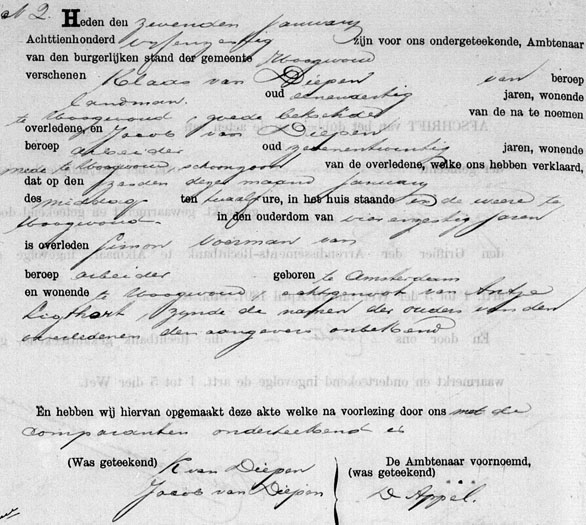 N 2. Heden den zevenden Januarij
Achttienhonderd vyfenzestig zijn voor ons ondergeteekende, Ambtenaar
van den burgerlijken stand der gemeente Hoogwoud
verschenen Klaas van Diepen van beroep
landman oud eenendertig jaren, wonende
te Hoogwoud, goede bekende van de na te noemen
overledene, en Jacob van Diepen
beroep arbeider oud zevenentwintig jaren, wonende
mede te Hoogwoud schoonzoon van de overledene, welke ons hebben verklaard,
dat op den zesden dezer maand Januarij
des middag ten twaalf ure, in het huis staande in de weere te
Hoogwoud in den ouderdom van jaren
is overleden Simon Moorman van
beroep arbeider geboren te Amsterdam
en wonende te Hoogwoud echtgenoot van Antje
Ligthart zynde de namen der ouders van den
overledenen den aangevers onbekend
En hebben wij hiervan opgemaakt deze akte welke na voorlezing door ons met de
comparanten onderteekend is
(Was geteekend) K van Diepen De Ambtenaar voornoemd,
Jacob van Diepen (was geteekend)
D Appel.